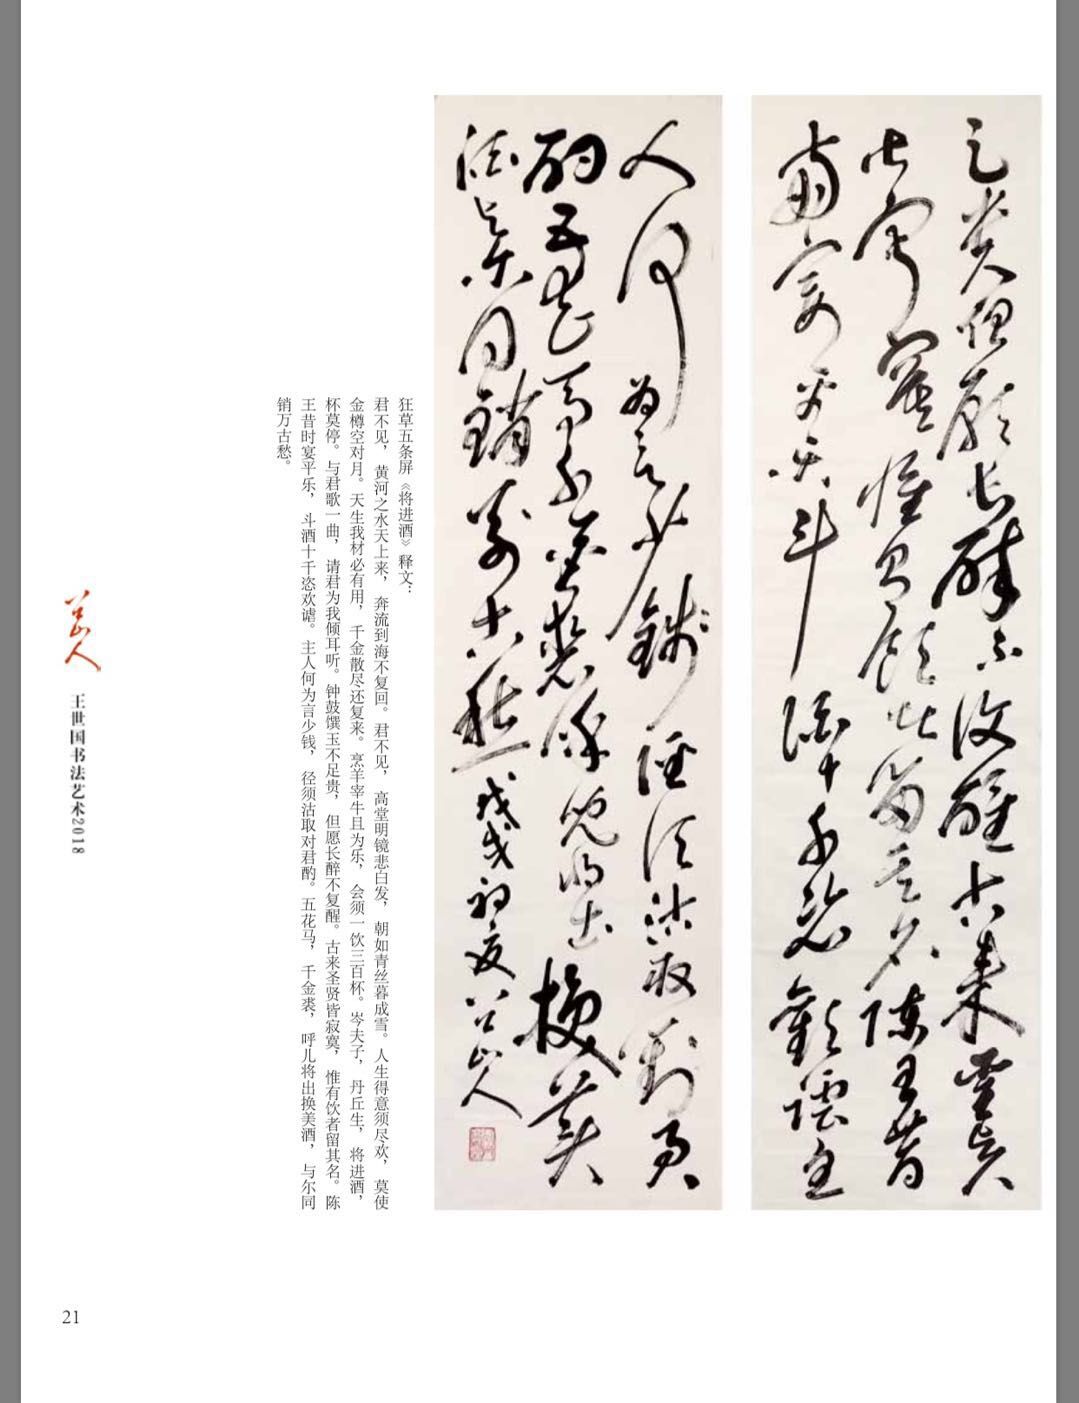 足贵但愿长醉不复醒古来圣贤
皆寂寞惟有饮者留其名陈王昔
时宴平乐斗酒十千恣欢谑主
人何为言少钱径须沽取对君
酌五花马千金裘呼儿将出换美
酒与尔同销万古愁戊戌初夏
狂草五条屏《将进酒》释文：
君不见，黄河之水天上来，奔流到海不复回。君不见，高堂明镜悲白发，朝如青丝暮成雪。人生得意须尽欢，莫使
金樽空对月。天生我材必有用，千金散尽还复来。烹羊宰牛且为乐，会须一饮三百杯。岑夫子，丹丘生，将进酒，
杯莫停。与君歌一曲，请君为我倾耳听。钟鼓馔玉不足贵，但愿长醉不复醒。古来圣贤皆寂寞，惟有饮者留其名。陈
王昔时宴平乐，斗酒十千恣欢谑。主人何为言少钱，径须沽取对君酌。五花马，千金裘，呼儿将出换美酒，与尔同
销万古愁。
王世国书法艺术2018
21